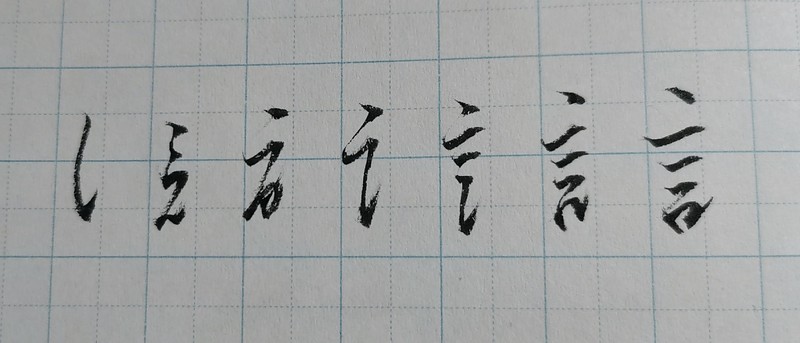 言 言 言 言 言 言 言